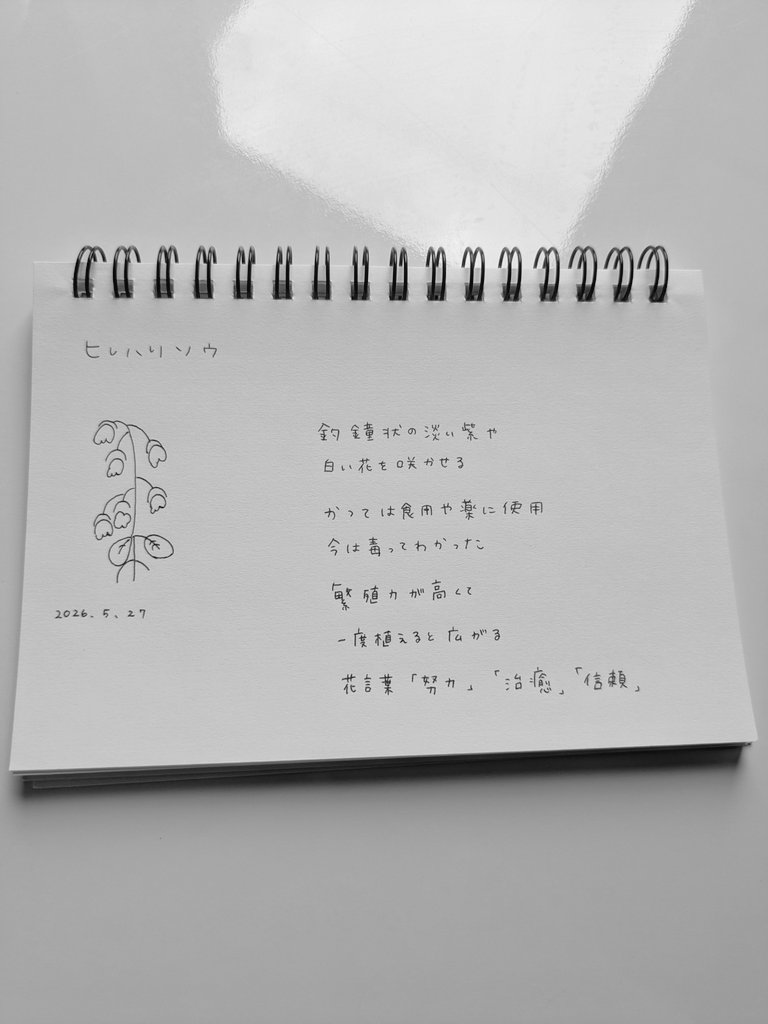 ヒレハリソウ
釣鐘状の淡い紫や
白い花を咲かせる
かつては食用や薬に使用
今は毒ってわかった
繁殖力が高くて
一度植えると広がる
花言葉「努力」「治癒」「信頼」
2026.5.27